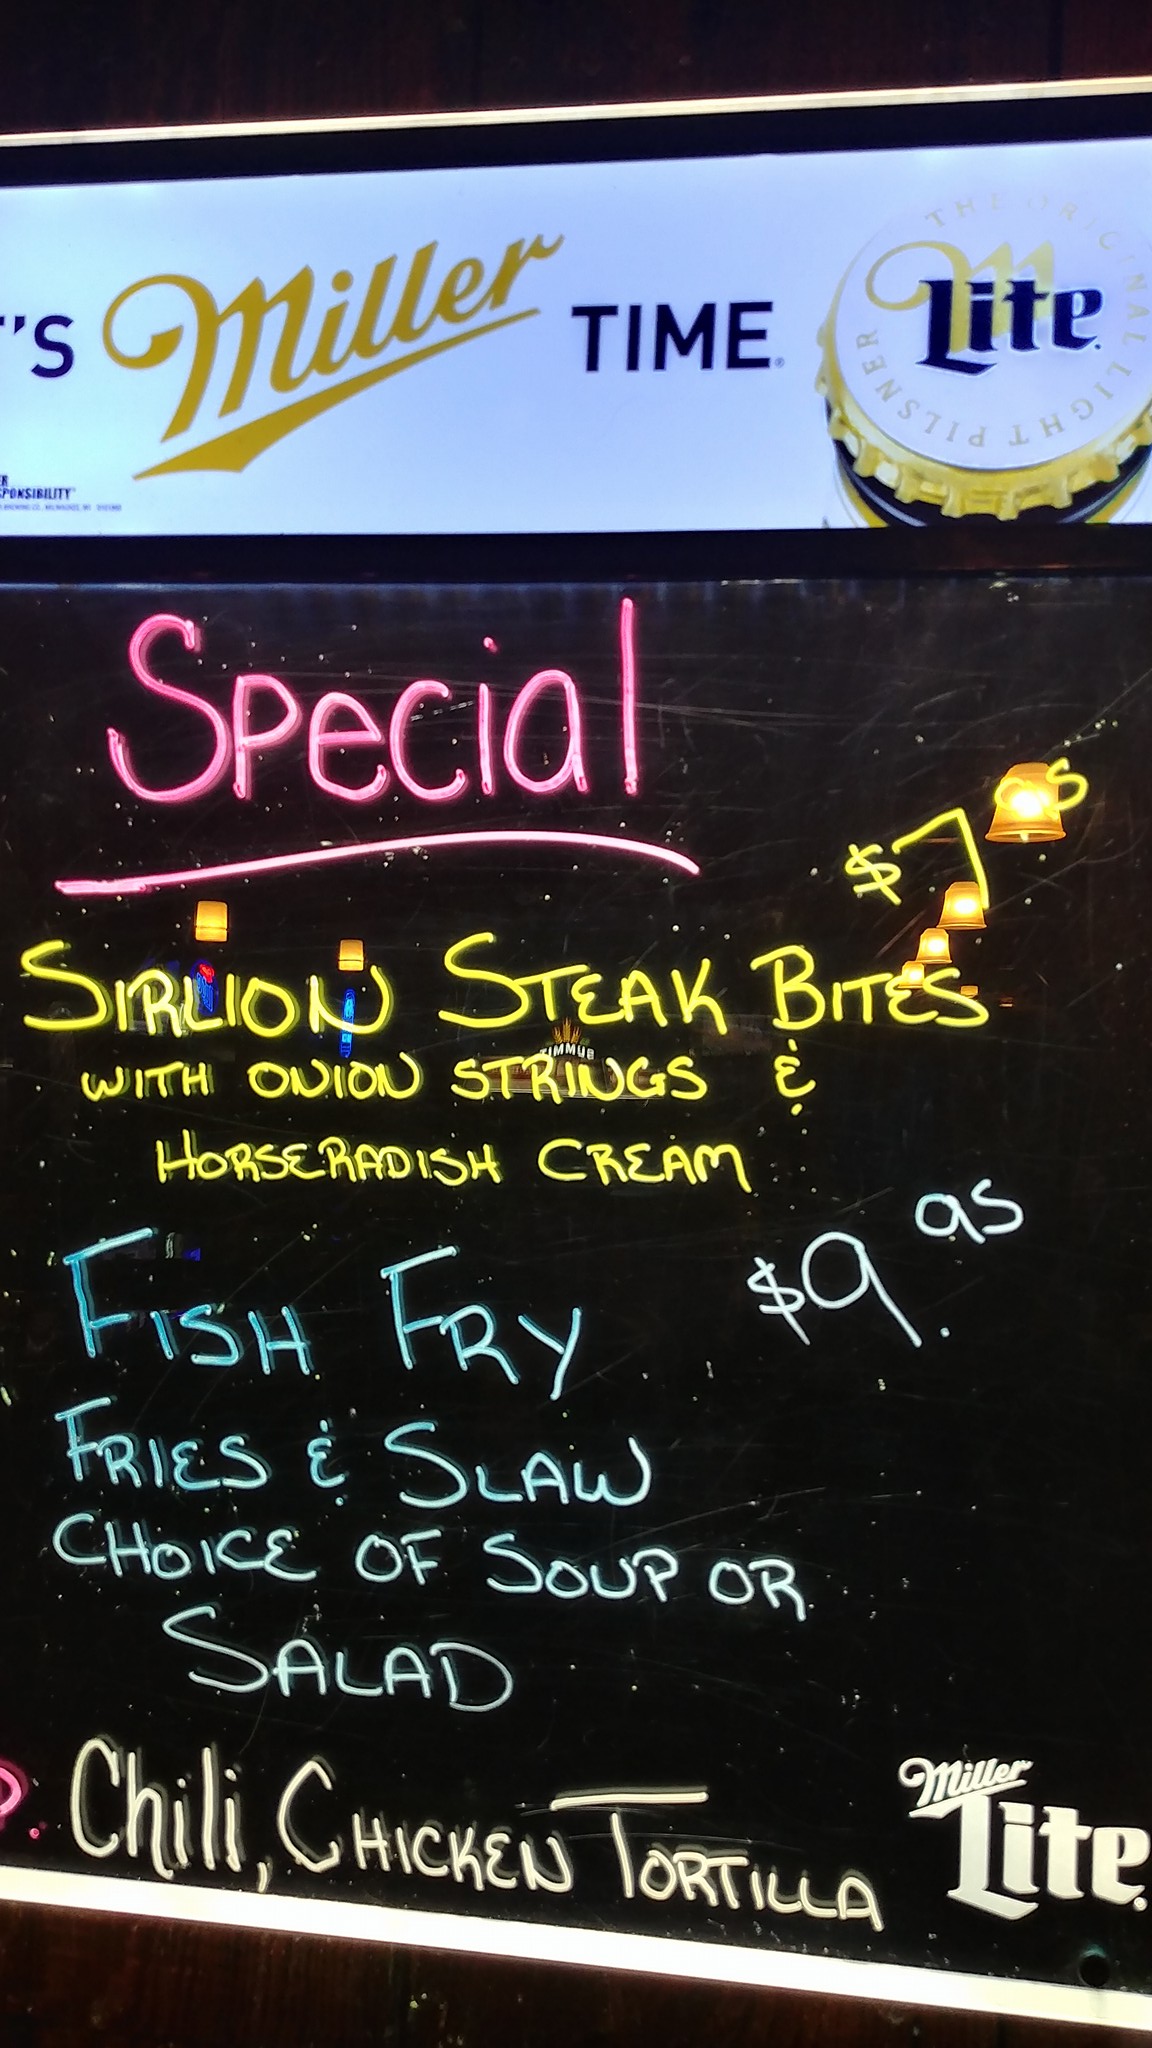 'S Miller TIME.
THE ORIGINAL LIGHT PILSNER
Lite
PONSIBILITY
Special
$7 95
SIRLION STEAK BITES
WITH ONION STRINGS &
HORSERADISH CREAM
FISH FRY $9.95
FRIES & SLAW
CHOICE OF SOUP OR
SALAD
Chili, CHICKEN TORTILLA
Miller
Lite